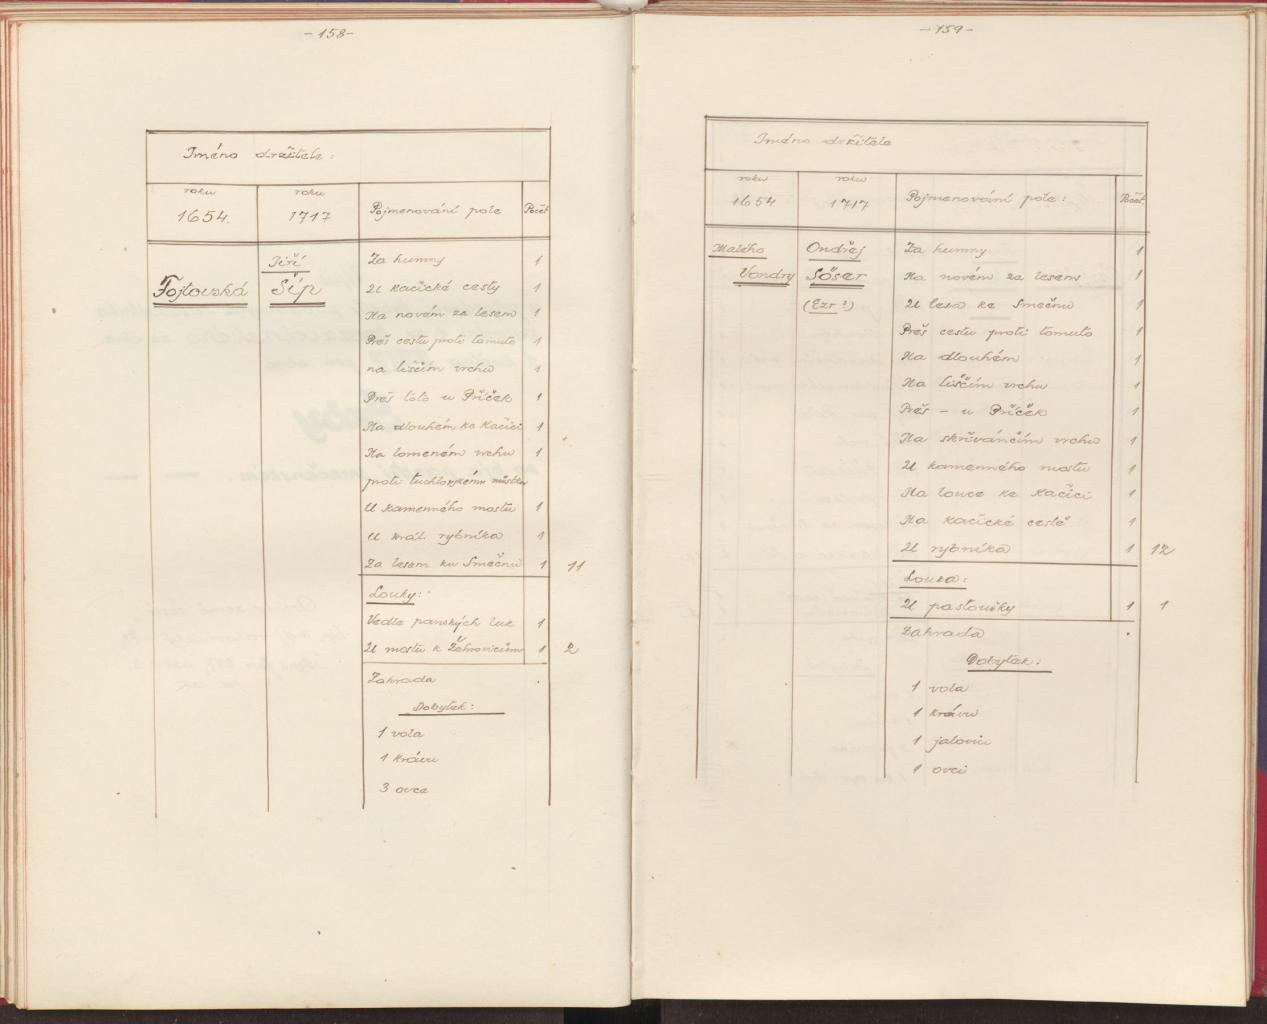 - 158 -
Jméno držitele:
roku roku
1654. 1717 Pojmenování pole Počet
Jiří Za humny 1
Fojtovská Šíp U kačické cesty 1
Na novém za lesem 1
Přes cestu proti tomuto 1
na liščím vrchu 1
Přes toto u Příček 1
Na dlouhém ke Kačici 1
Na lomeném vrchu 1
proti tuchlorskému můstku
U kamenného mostu 1
U král. rybníka 1
Za lesem ku Smečnu 1 11
Louky:
Vedle panských luk 1
U mostu k Žehrovicům 1 2
Zahrada .
Dobytek:
1 vola
1 krávu
3 ovce
- 159 -
Jméno držitele
roku roku
1654 1717 Pojmenování pole: Počet
Malého Ondřej Za humny 1
Vondry Söser Na novém za lesem 1
(Ezr?) U lesa ke Smečnu 1
Přes cestu proti tomuto 1
Na dlouhém 1
Na liščím vrchu 1
Přes - u Příček 1
Na skřivánčím vrchu 1
U kamenného mostu 1
Na louce ke Kačici 1
Na kačické cestě 1
U rybníka 1 12
Louka:
U pastoušky 1 1
Zahrada .
Dobytek:
1 vola
1 krávu
1 jalovici
1 ovci